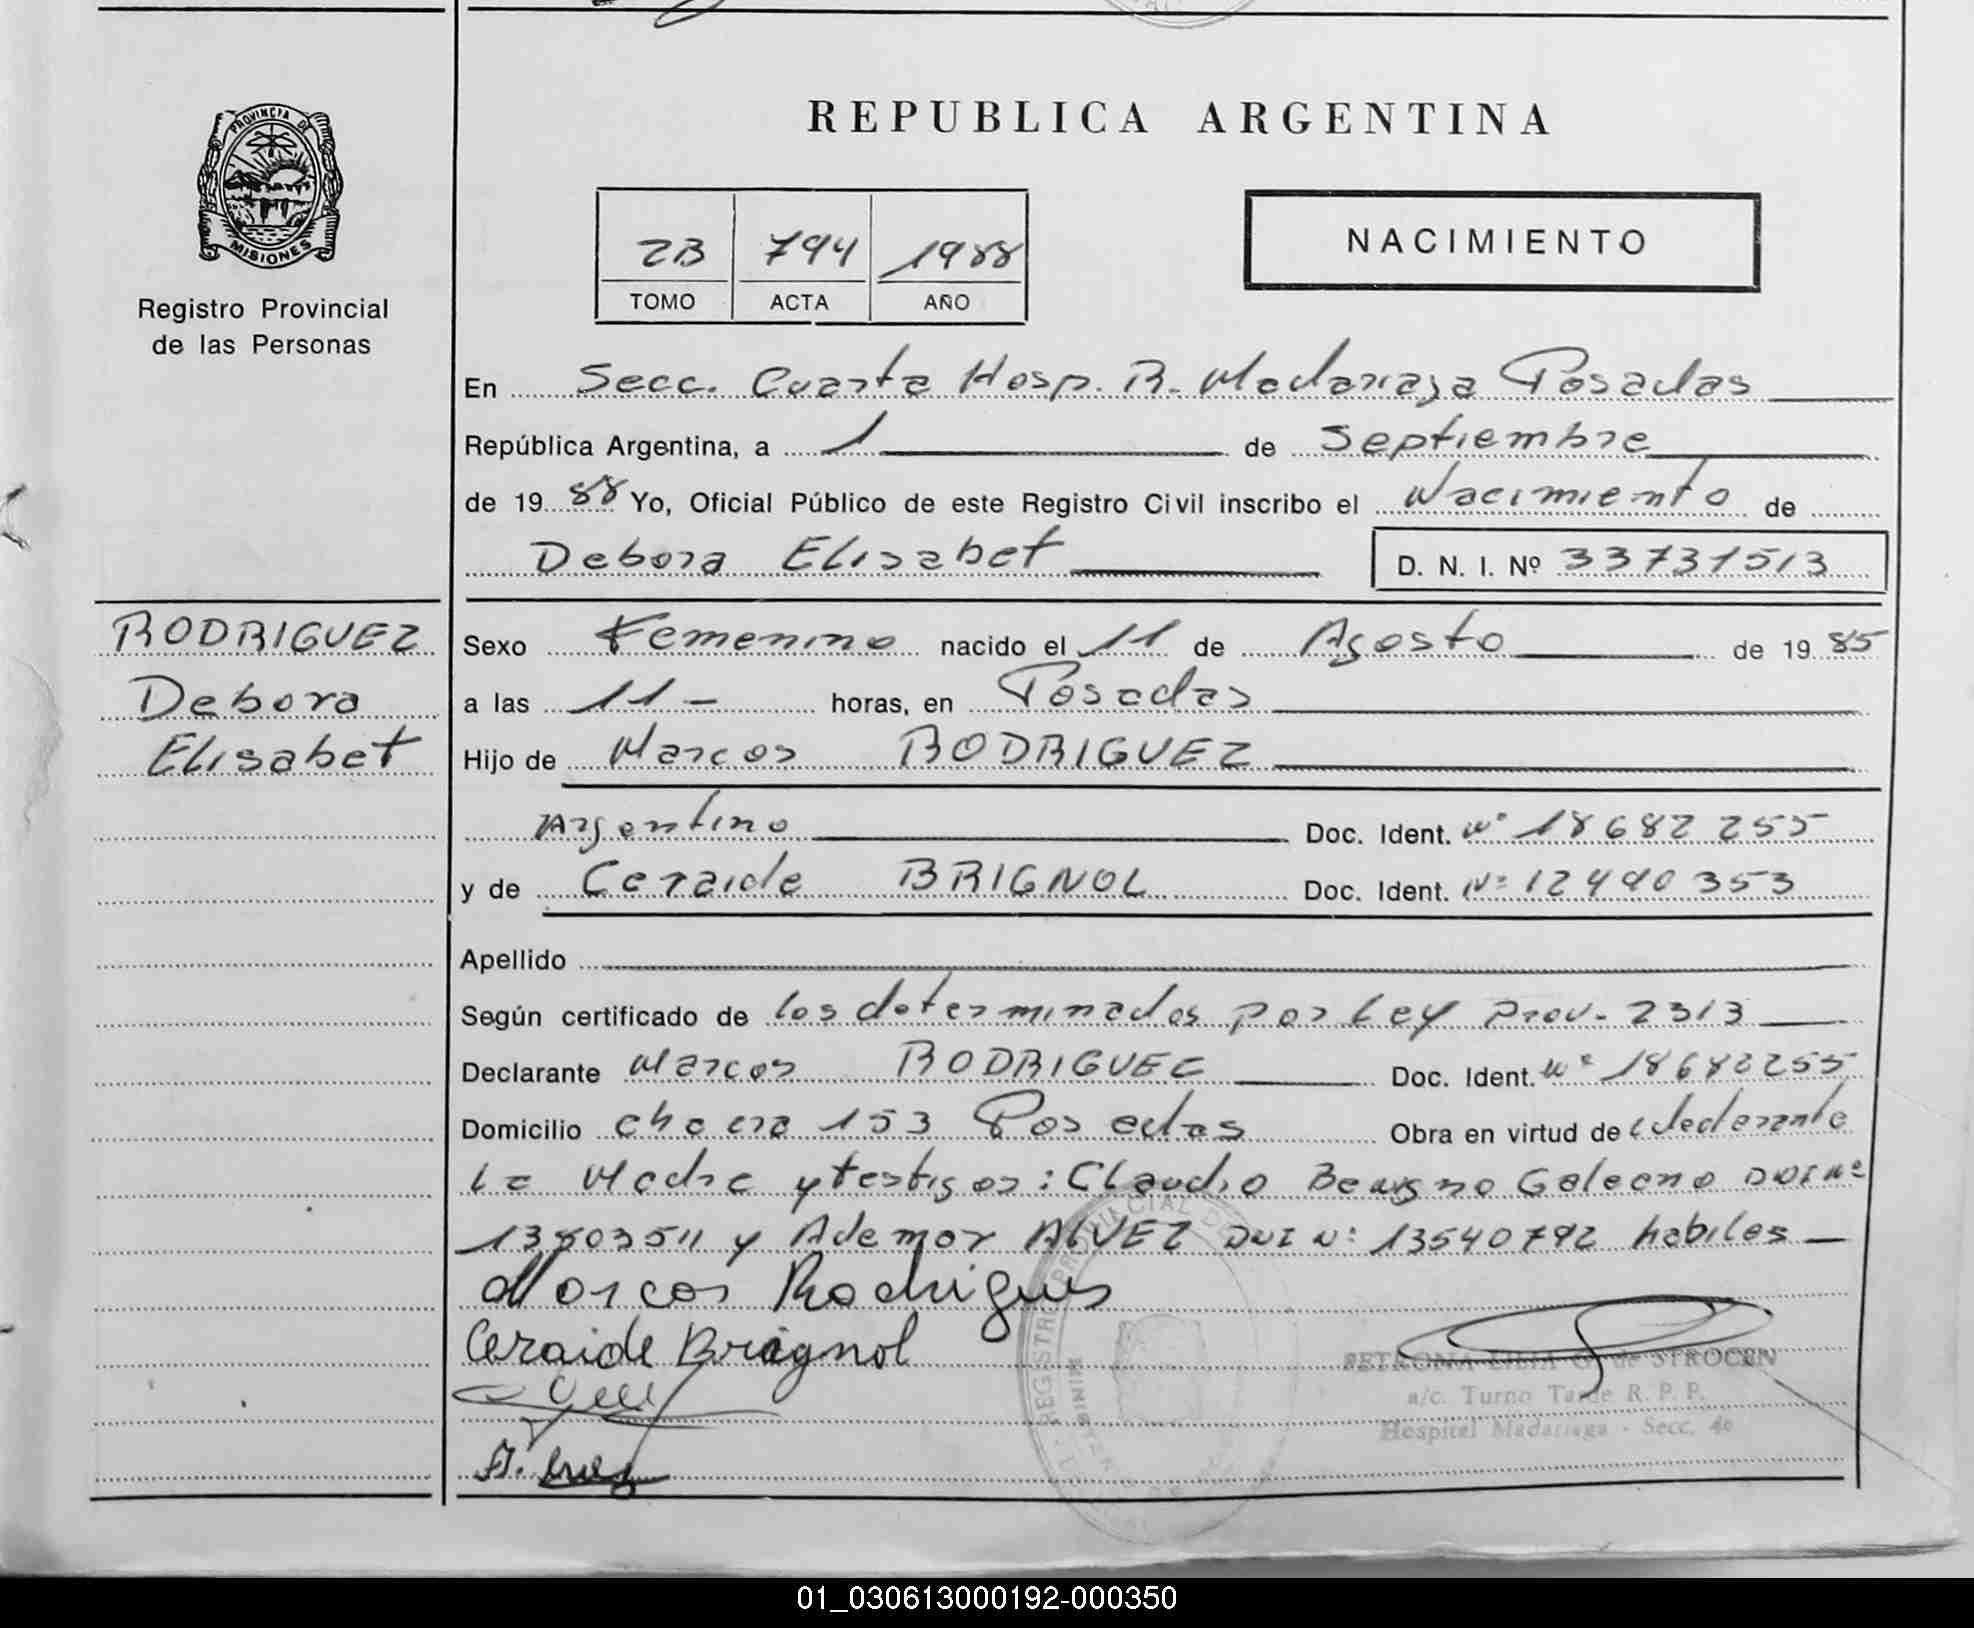 PROVINCIA DE
MISIONES
Registro Provincial
de las Personas
REPUBLICA ARGENTINA
2B 794 1988
TOMO ACTA AÑO
NACIMIENTO
En Secc. Cuarta Hosp. R. Madariaga Posadas
República Argentina, a 1 de Septiembre
de 1988 Yo, Oficial Público de este Registro Civil inscribo el Nacimiento de
Debora Elisabet D. N. I. Nº 33731513
RODRIGUEZ
Debora
Elisabet
Sexo Femenino nacido el 11 de Agosto de 1985
a las 11 - horas, en Posadas
Hijo de Marcos RODRIGUEZ
Argentino Doc. Ident. Nº 18682255
y de Ceraide BRIGNOL Doc. Ident. Nº 12490353
Apellido
Según certificado de los determinados por Ley Prov. 2313
Declarante Marcos RODRIGUEZ Doc. Ident. Nº 18682255
Domicilio Chacra 153 Posadas Obra en virtud de
La Madre y testigos: Claudio Benigno Galeano DNI Nº
y Ademar ALVEZ DNI Nº 13540792 habiles
Marcos Rodrigues
Ceraide Brignol
REGISTRO PROVINCIAL DE
PETRONA LILIA G. de STROCEN
a/c. Turno Tarde R. P. P.
Hospital Madariaga - Secc. 4a
01_030613000192-000350